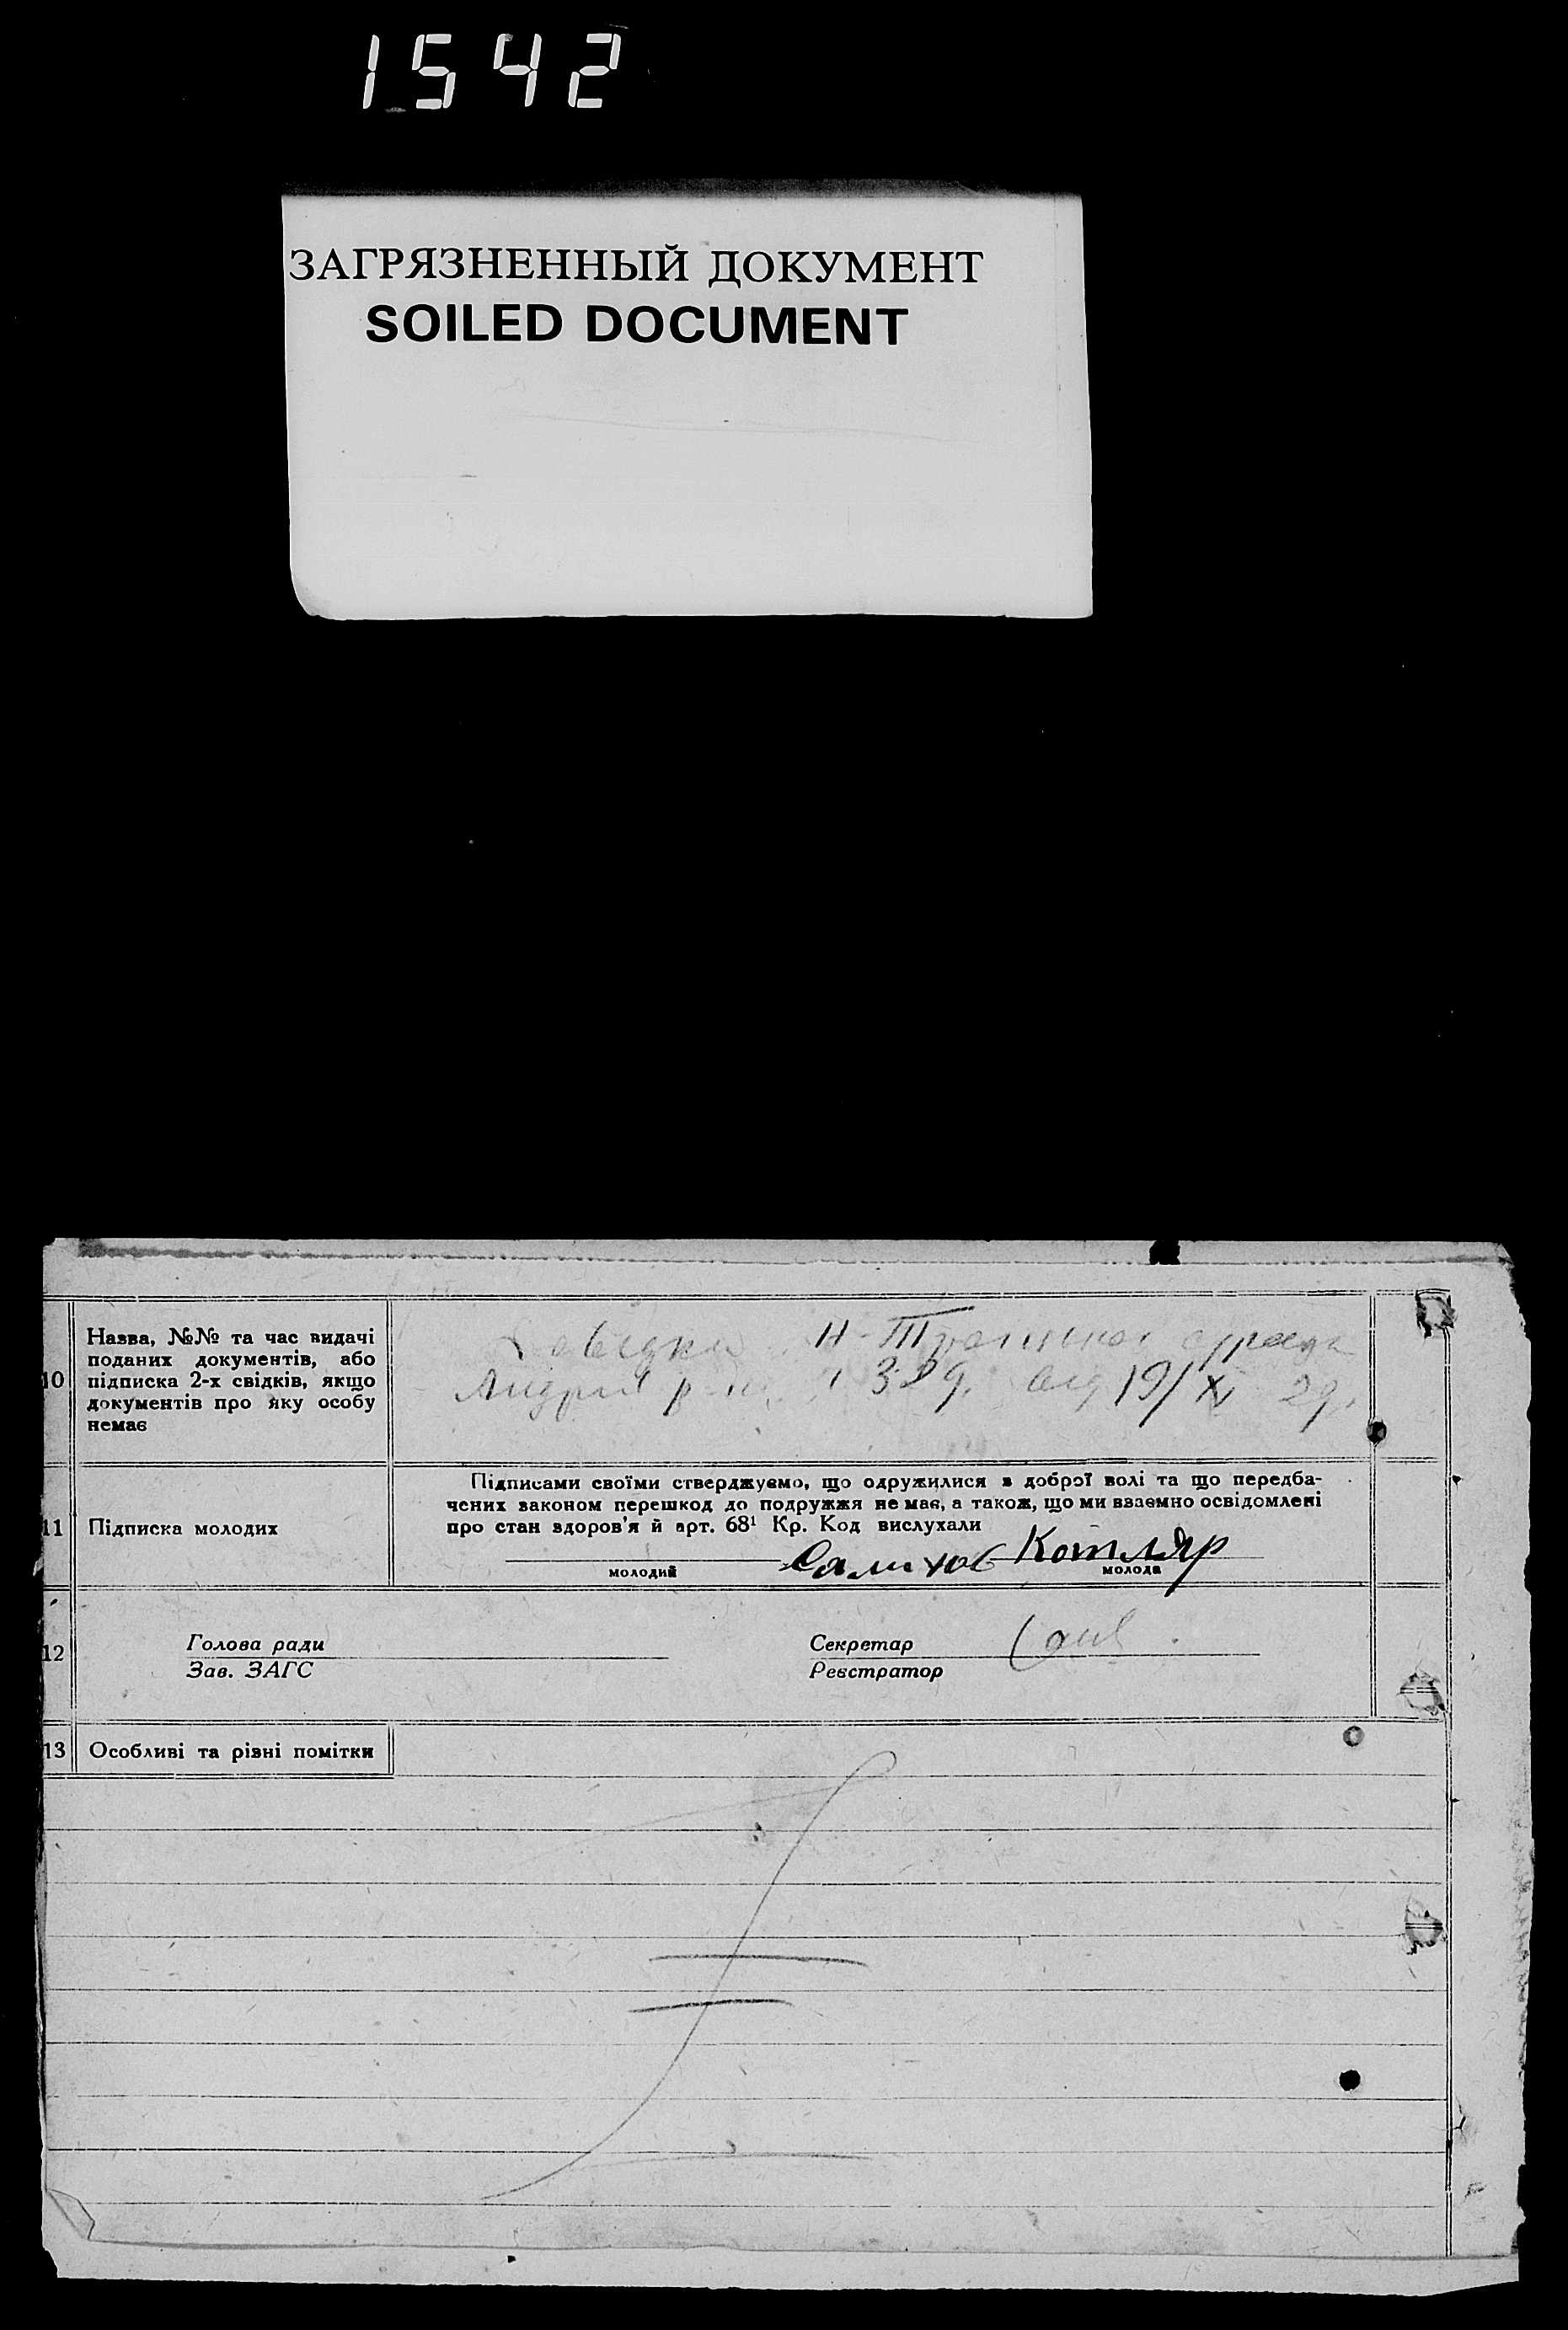 1542
ЗАГРЯЗНЕННЫЙ ДОКУМЕНТ
SOILED DOCUMENT
10
Назва, №№ та час видачі
поданих документів, або
підписка 2-х свідків, якщо
документів про яку особу
немає
Довідки Н-
19/XI 29.
11
Підписка молодих
Підписами своїми стверджуємо, що одружилися з доброї волі та що передба-
чених законом перешкод до подружжя не має, а також, що ми взаємно освідомлені
про стан здоров'я й арт. 68¹ Кр. Код вислухали
Салихов Котляр
молодий молода
12
Голова ради Секретар
Зав. ЗАГС Реєстратор
13 Особливі та різні помітки